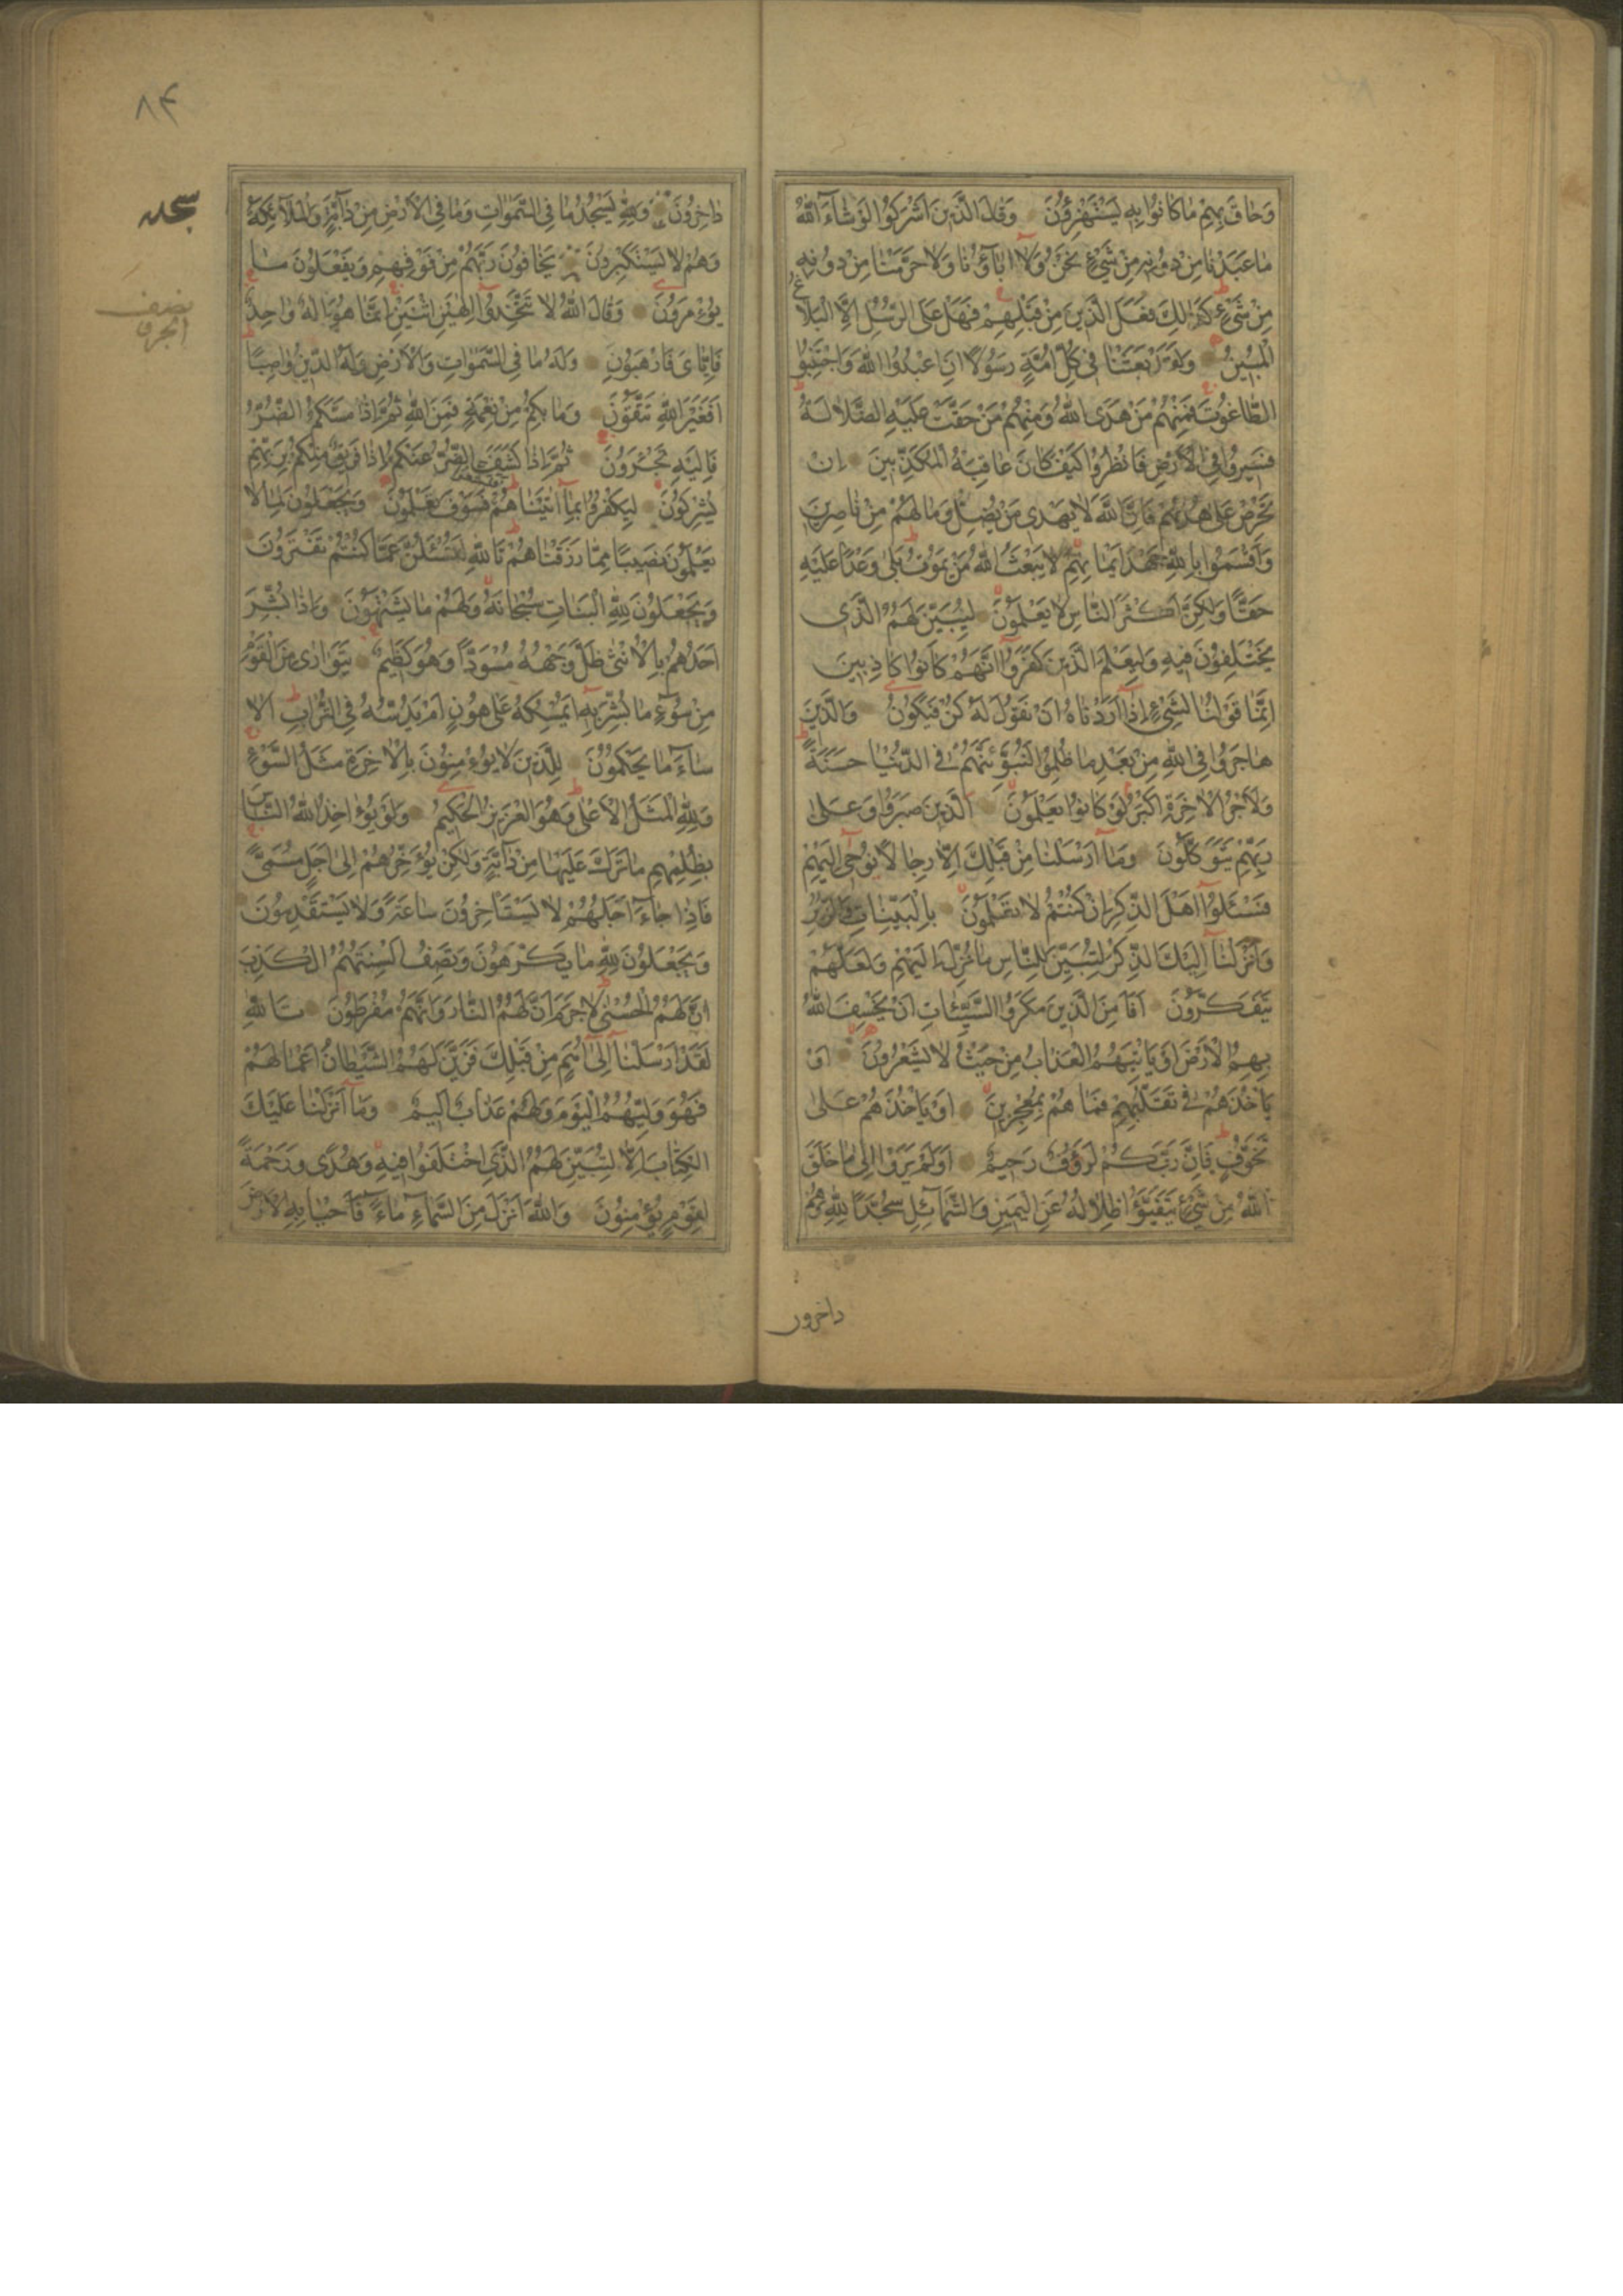 وَحَاقَ بِهِمْ مَا كَانُوا بِهِ يَسْتَهْزِؤُنَ وَقَالَ الَّذِينَ اَشْرَكُوا لَوْ شَاءَ اللّٰهُ
مَا عَبَدْنَا مِنْ دُونِهِ مِنْ شَيْءٍ نَحْنُ وَلَا اٰبَاؤُنَا وَلَا حَرَّمْنَا مِنْ دُونِهِ
مِنْ شَيْءٍ كَذَالِكَ فَعَلَ الَّذِينَ مِنْ قَبْلِهِمْ فَهَلْ عَلَى الرُّسُلِ اِلَّا الْبَلَاغُ
الْمُبِينُ وَلَقَدْ بَعَثْنَا فِي كُلِّ اُمَّةٍ رَسُولًا اَنِ اعْبُدُوا اللّٰهَ وَاجْتَنِبُوا
الطَّاغُوتَ فَمِنْهُمْ مَنْ هَدَى اللّٰهُ وَمِنْهُمْ مَنْ حَقَّتْ عَلَيْهِ الضَّلَالَةُ
فَسِيرُوا فِي الْاَرْضِ فَانْظُرُوا كَيْفَ كَانَ عَاقِبَةُ الْمُكَذِّبِينَ اِنْ
تَحْرِصْ عَلٰى هُدٰيهُمْ فَاِنَّ اللّٰهَ لَا يَهْدِي مَنْ يُضِلُّ وَمَا لَهُمْ مِنْ نَاصِرِينَ
وَاَقْسَمُوا بِاللّٰهِ جَهْدَ اَيْمَانِهِمْ لَا يَبْعَثُ اللّٰهُ مَنْ يَمُوتُ بَلٰى وَعْدًا عَلَيْهِ
حَقًّا وَلٰكِنَّ اَكْثَرَ النَّاسِ لَا يَعْلَمُونَ لِيُبَيِّنَ لَهُمُ الَّذِي
يَخْتَلِفُونَ فِيهِ وَلِيَعْلَمَ الَّذِينَ كَفَرُوا اَنَّهُمْ كَانُوا كَاذِبِينَ
اِنَّمَا قَوْلُنَا لِشَيْءٍ اِذَا اَرَدْنَاهُ اَنْ نَقُولَ لَهُ كُنْ فَيَكُونُ وَالَّذِينَ
هَاجَرُوا فِي اللّٰهِ مِنْ بَعْدِ مَا ظُلِمُوا لَنُبَوِّئَنَّهُمْ فِي الدُّنْيَا حَسَنَةً
وَلَاَجْرُ الْاٰخِرَةِ اَكْبَرُ لَوْ كَانُوا يَعْلَمُونَ الَّذِينَ صَبَرُوا وَعَلٰى
رَبِّهِمْ يَتَوَكَّلُونَ وَمَا اَرْسَلْنَا مِنْ قَبْلِكَ اِلَّا رِجَالًا نُوحِي اِلَيْهِمْ
فَسْئَلُوا اَهْلَ الذِّكْرِ اِنْ كُنْتُمْ لَا تَعْلَمُونَ بِالْبَيِّنَاتِ وَالزُّبُرِ
وَاَنْزَلْنَا اِلَيْكَ الذِّكْرَ لِتُبَيِّنَ لِلنَّاسِ مَا نُزِّلَ اِلَيْهِمْ وَلَعَلَّهُمْ
يَتَفَكَّرُونَ اَفَاَمِنَ الَّذِينَ مَكَرُوا السَّيِّئَاتِ اَنْ يَخْسِفَ اللّٰهُ
بِهِمُ الْاَرْضَ اَوْ يَاْتِيَهُمُ الْعَذَابُ مِنْ حَيْثُ لَا يَشْعُرُونَ اَوْ
يَاْخُذَهُمْ فِي تَقَلُّبِهِمْ فَمَا هُمْ بِمُعْجِزِينَ اَوْ يَاْخُذَهُمْ عَلٰى
تَخَوُّفٍ فَاِنَّ رَبَّكُمْ لَرَؤُفٌ رَحِيمٌ اَوَلَمْ يَرَوْا اِلٰى مَا خَلَقَ
اللّٰهُ مِنْ شَيْءٍ يَتَفَيَّؤُا ظِلَالُهُ عَنِ الْيَمِينِ وَالشَّمَائِلِ سُجَّدًا لِلّٰهِ وَهُمْ
داخرون
٨٤
سجده
نصف
الجزء
دَاخِرُونَ وَلِلّٰهِ يَسْجُدُ مَا فِي السَّمٰوَاتِ وَمَا فِي الْاَرْضِ مِنْ دَابَّةٍ وَالْمَلَائِكَةُ
وَهُمْ لَا يَسْتَكْبِرُونَ يَخَافُونَ رَبَّهُمْ مِنْ فَوْقِهِمْ وَيَفْعَلُونَ مَا
يُؤْمَرُونَ وَقَالَ اللّٰهُ لَا تَتَّخِذُوا اِلٰهَيْنِ اثْنَيْنِ اِنَّمَا هُوَ اِلٰهٌ وَاحِدٌ
فَاِيَّايَ فَارْهَبُونِ وَلَهُ مَا فِي السَّمٰوَاتِ وَالْاَرْضِ وَلَهُ الدِّينُ وَاصِبًا
اَفَغَيْرَ اللّٰهِ تَتَّقُونَ وَمَا بِكُمْ مِنْ نِعْمَةٍ فَمِنَ اللّٰهِ ثُمَّ اِذَا مَسَّكُمُ الضُّرُّ
فَاِلَيْهِ تَجْئَرُونَ ثُمَّ اِذَا كَشَفَ الضُّرَّ عَنْكُمْ اِذَا فَرِيقٌ مِنْكُمْ بِرَبِّهِمْ
يُشْرِكُونَ لِيَكْفُرُوا بِمَا اٰتَيْنَاهُمْ فَتَمَتَّعُوا فَسَوْفَ تَعْلَمُونَ وَيَجْعَلُونَ لِمَا لَا
يَعْلَمُونَ نَصِيبًا مِمَّا رَزَقْنَاهُمْ تَاللّٰهِ لَتُسْئَلُنَّ عَمَّا كُنْتُمْ تَفْتَرُونَ
وَيَجْعَلُونَ لِلّٰهِ الْبَنَاتِ سُبْحَانَهُ وَلَهُمْ مَا يَشْتَهُونَ وَاِذَا بُشِّرَ
اَحَدُهُمْ بِالْاُنْثٰى ظَلَّ وَجْهُهُ مُسْوَدًّا وَهُوَ كَظِيمٌ يَتَوَارٰى مِنَ الْقَوْمِ
مِنْ سُوءِ مَا بُشِّرَ بِهِ اَيُمْسِكُهُ عَلٰى هُونٍ اَمْ يَدُسُّهُ فِي التُّرَابِ اَلَا
سَاءَ مَا يَحْكُمُونَ لِلَّذِينَ لَا يُؤْمِنُونَ بِالْاٰخِرَةِ مَثَلُ السَّوْءِ
وَلِلّٰهِ الْمَثَلُ الْاَعْلٰى وَهُوَ الْعَزِيزُ الْحَكِيمُ وَلَوْ يُؤَاخِذُ اللّٰهُ النَّاسَ
بِظُلْمِهِمْ مَا تَرَكَ عَلَيْهَا مِنْ دَابَّةٍ وَلٰكِنْ يُؤَخِّرُهُمْ اِلٰى اَجَلٍ مُسَمًّى
فَاِذَا جَاءَ اَجَلُهُمْ لَا يَسْتَاْخِرُونَ سَاعَةً وَلَا يَسْتَقْدِمُونَ
وَيَجْعَلُونَ لِلّٰهِ مَا يَكْرَهُونَ وَتَصِفُ اَلْسِنَتُهُمُ الْكَذِبَ
اَنَّ لَهُمُ الْحُسْنٰى لَا جَرَمَ اَنَّ لَهُمُ النَّارَ وَاَنَّهُمْ مُفْرَطُونَ تَاللّٰهِ
لَقَدْ اَرْسَلْنَا اِلٰى اُمَمٍ مِنْ قَبْلِكَ فَزَيَّنَ لَهُمُ الشَّيْطَانُ اَعْمَالَهُمْ
فَهُوَ وَلِيُّهُمُ الْيَوْمَ وَلَهُمْ عَذَابٌ اَلِيمٌ وَمَا اَنْزَلْنَا عَلَيْكَ
الْكِتَابَ اِلَّا لِتُبَيِّنَ لَهُمُ الَّذِي اخْتَلَفُوا فِيهِ وَهُدًى وَرَحْمَةً
لِقَوْمٍ يُؤْمِنُونَ وَاللّٰهُ اَنْزَلَ مِنَ السَّمَاءِ مَاءً فَاَحْيَا بِهِ الْاَرْضَ